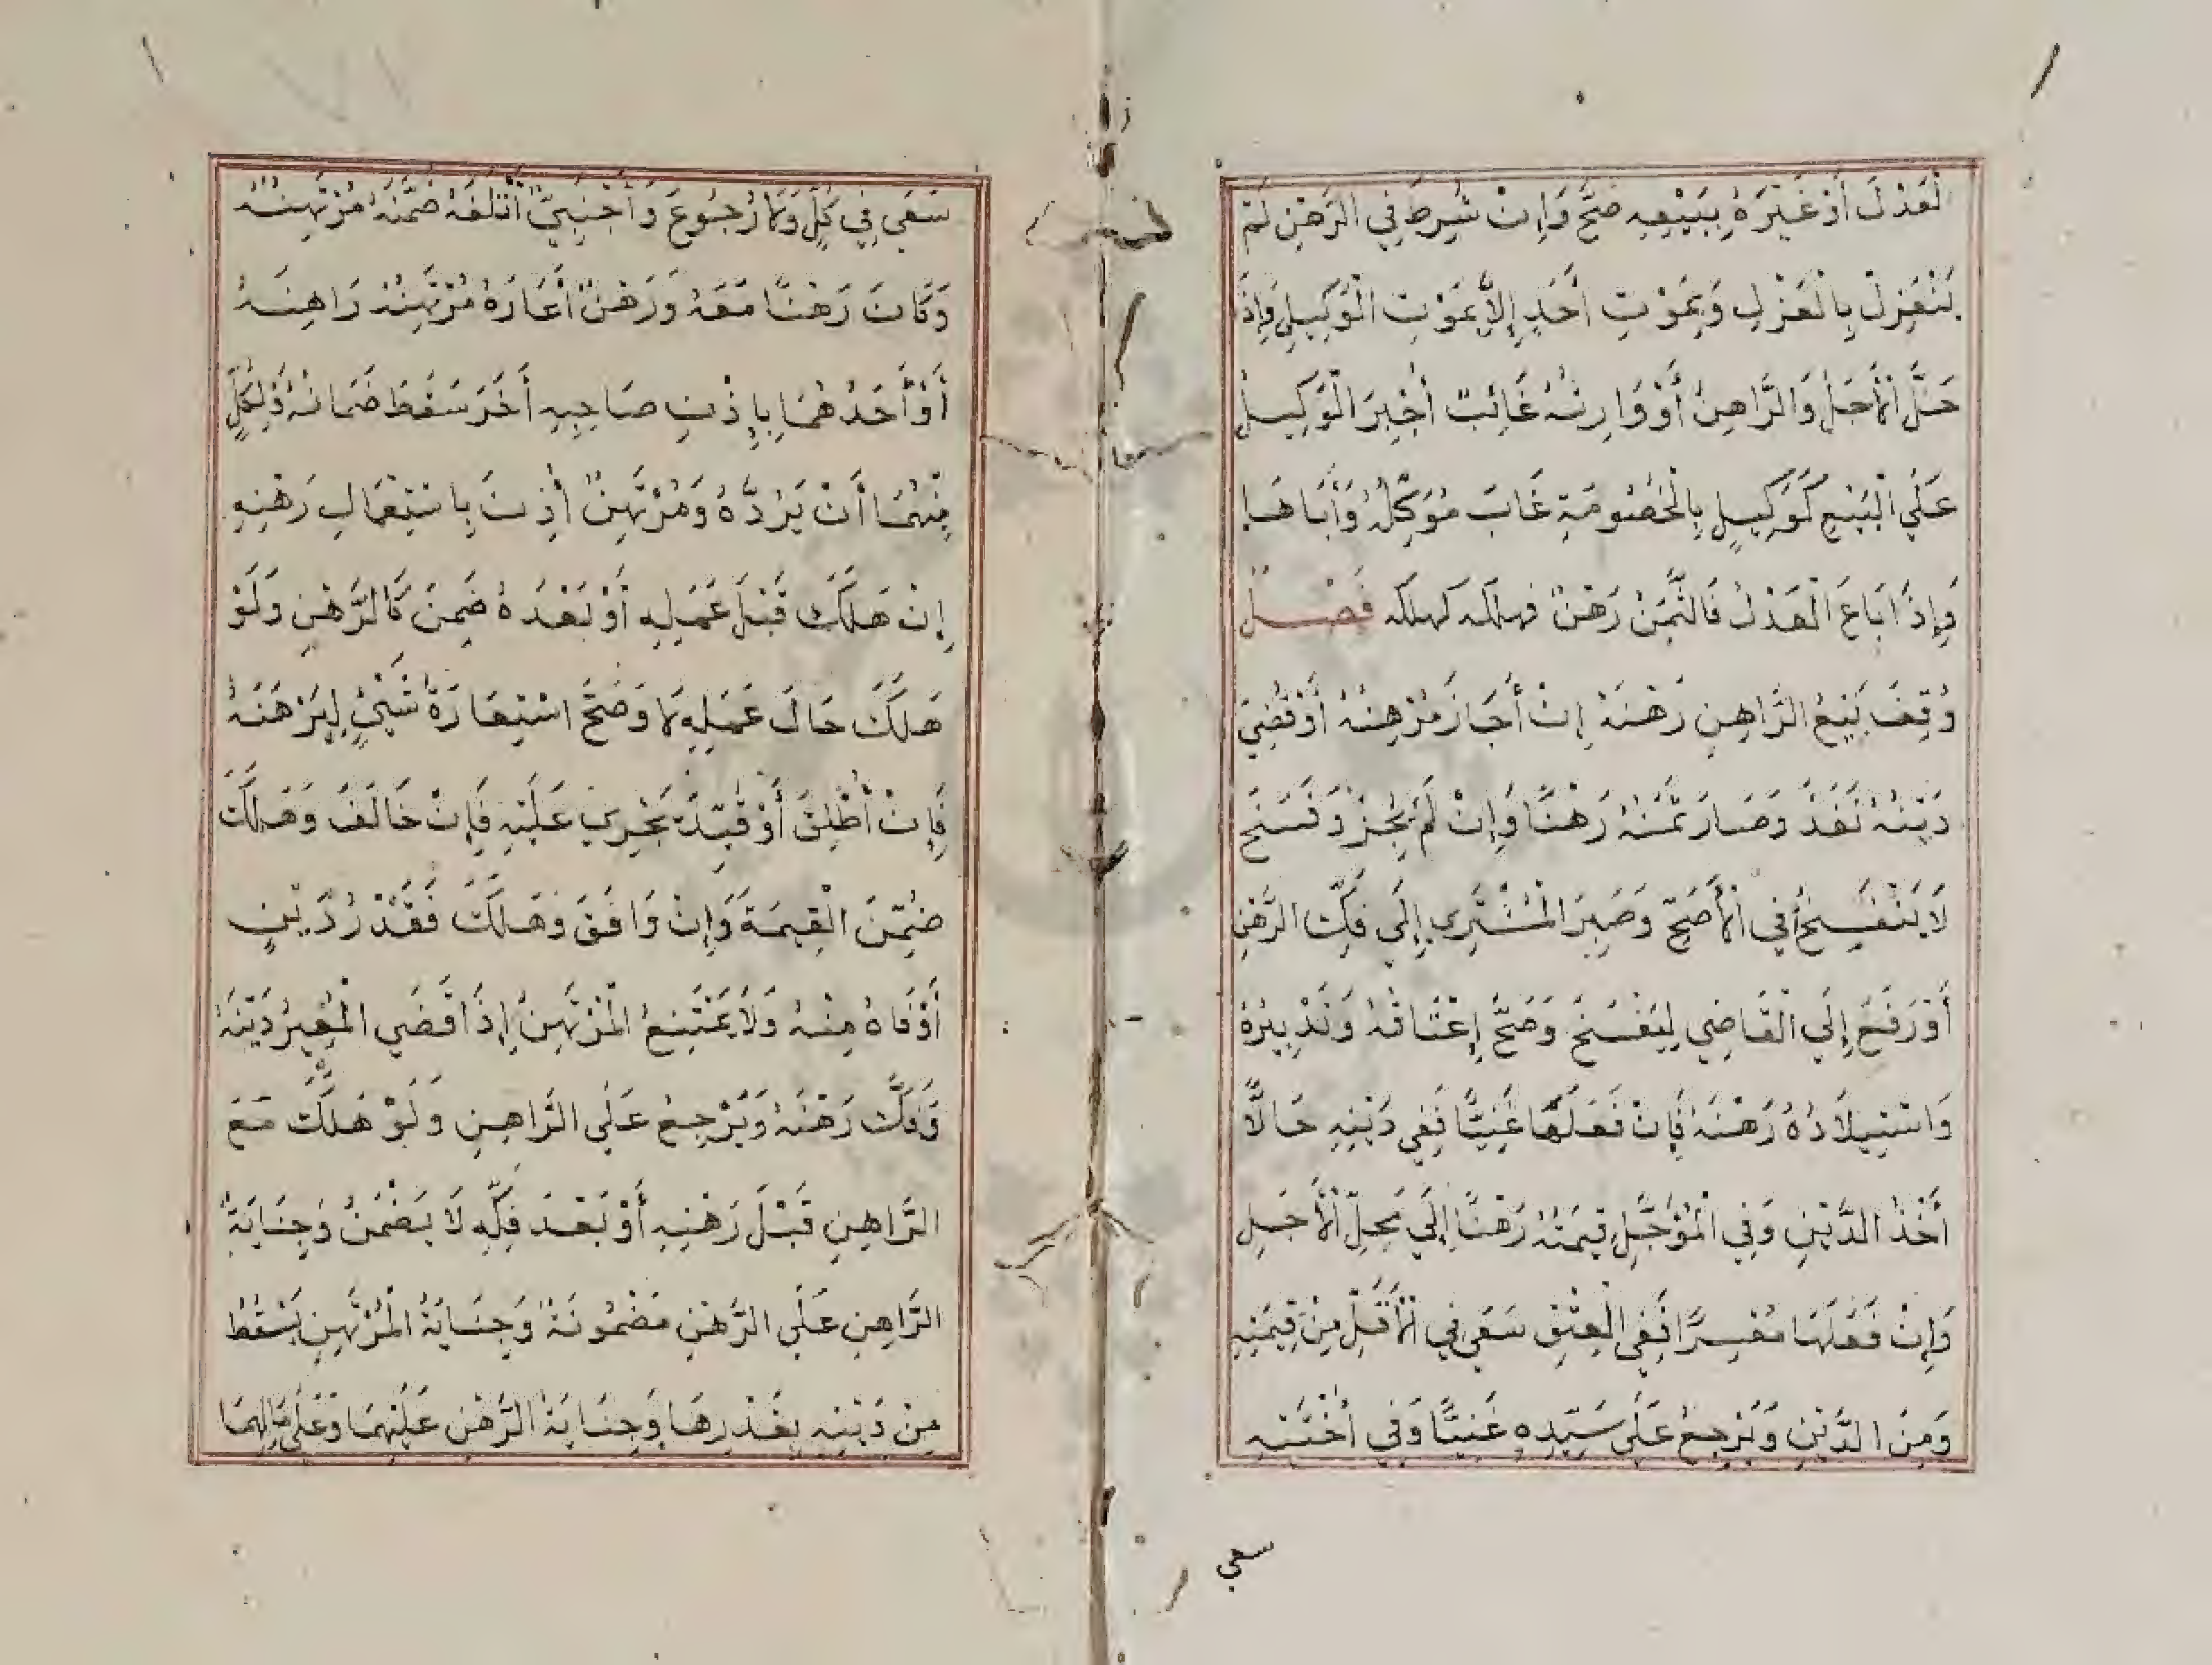 لْعَدْلَ أَوْ غَيْرَهُ بِبَيْعِهِ صَحَّ وَإِنْ شُرِطَ فِي الرَّهْنِ لَمْ
يَنْعَزِلْ بِالْعَزْلِ وَبِمَوْتِ أَحَدٍ إِلاَّ بِمَوْتِ الْوَكِيلِ وَإِذَ
حَلَّ الْأَجَلُ وَالرَّاهِنُ أَوْ وَارِثُهُ غَائِبٌ أُجْبِرَ الْوَكِيلُ
عَلَي الْبَيْعِ كَوَكِيلٍ بِالْخُصُومَةِ غَابَ مُوَكِّلُهُ وَأَبَاهَا
وَإِذَا بَاعَ الْعَدْلُ فَالثَّمَنُ رَهْنٌ فهلكه كهلكه فَصْلٌ
وُقِفَ بَيْعُ الرَّاهِنِ رَهْنَهُ إِنْ أَجَازَ مُرْهِنُهُ أَوْ قُضِيَ
دَيْنُهُ نَفَذَ وَصَارَ ثَمَنُهُ رَهْنًا وَإِنْ لَمْ يُجِزْ وَفَسَخَ
لَا يَنْفَسِخُ فِي الْأَصَحِّ وَصَبَرَ الْمُشْتَرِي إِلَي فَكِّ الرَّهْنِ
أَوْ رَفَعَ إِلَي الْقَاضِي لِيَفْسَخَ وَصَحَّ إِعْتَاقُهُ وَتَدْبِيرُهُ
وَاسْتِيلَادُهُ رَهْنَهُ فَإِنْ فَعَلَهَا غَنِيًّا فَفِي دَيْنِهِ حَالًّا
أَخْذُ الدَّيْنِ وَفِي الْمُؤَجَّلِ قِيمَتُهُ رَهْنًا إِلَي مَحِلِّ الْأَجَلِ
وَإِنْ فَعَلَهَا مُعْسِرًا فَفِي الْعِتْقِ سَعَي فِي الْأَقَلِّ مِنْ قِيمَتِهِ
وَمِنَ الدَّيْنِ وَيَرْجِعُ عَلَي سَيِّدِهِ غَنِيًّا وَفِي أُخْتَيْهِ
سعي
سَعَي فِي كُلٍّ وَلَا رُجُوعَ وَأَجْنَبِيٌّ أَتْلَفَهُ ضَمَّنَهُ مُرْتَهِنُهُ
وَكَانَ رَهْنًا مَعَهُ وَرَهْنٌ أَعَارَهُ مُرْتَهِنُهُ رَاهِنَهُ
أَوْ أَحَدُهُمَا بِإِذْنِ صَاحِبِهِ أَخَرَ سَقَطَ ضَمَانُهُ وَلِكُلٍّ
مِنْهُمَا أَنْ يَرُدَّهُ وَمُرْتَهِنٌ أَذِنَ بِاسْتِعْمَالِ رَهْنِهِ
إِنْ هَلَكَ قَبْلَ عَمَلِهِ أَوْ بَعْدَهُ ضَمِنَ كَالرَّهْنِ وَلَوْ
هَلَكَ حَالَ عَمَلِهِ لَا وَصَحَّ اسْتِعَارَةُ شَيْئٍ لِيَرْهَنَهُ
فَإِنْ أَطْلَقَ أَوْ قَيَّدَ يَجْرِي عَلَيْهِ فَإِنْ خَالَفَ وَهَلَكَ
ضُمِّنَ الْقِيمَةَ وَإِنْ وَافَقَ وَهَلَكَ فَقَدْرُ دَيْنٍ
أَوْفَاهُ مِنْهُ وَلَا يَمْتَنِعُ الْمُرْتَهِنُ إِذَا قَضَي الْمُعِيرُ دَيْنَهُ
وَفَكَّ رَهْنَهُ وَيَرْجِعُ عَلَي الرَّاهِنِ وَلَوْ هَلَكَ مَعَ
الرَّاهِنِ قَبْلَ رَهْنِهِ أَوْ بَعْدَ فَكِّهِ لَا يَضْمَنُ وَجِنَايَةُ
الرَّاهِنِ عَلَي الرَّهْنِ مَضْمُونَةٌ وَجِنَايَةُ الْمُرْتَهِنِ يَسْقُطُ
مِنْ دَيْنِهِ بِقَدْرِهَا وَجِنَايَةُ الرَّهْنِ عَلَيْهِمَا وَعَلَي مَالِهِمَا